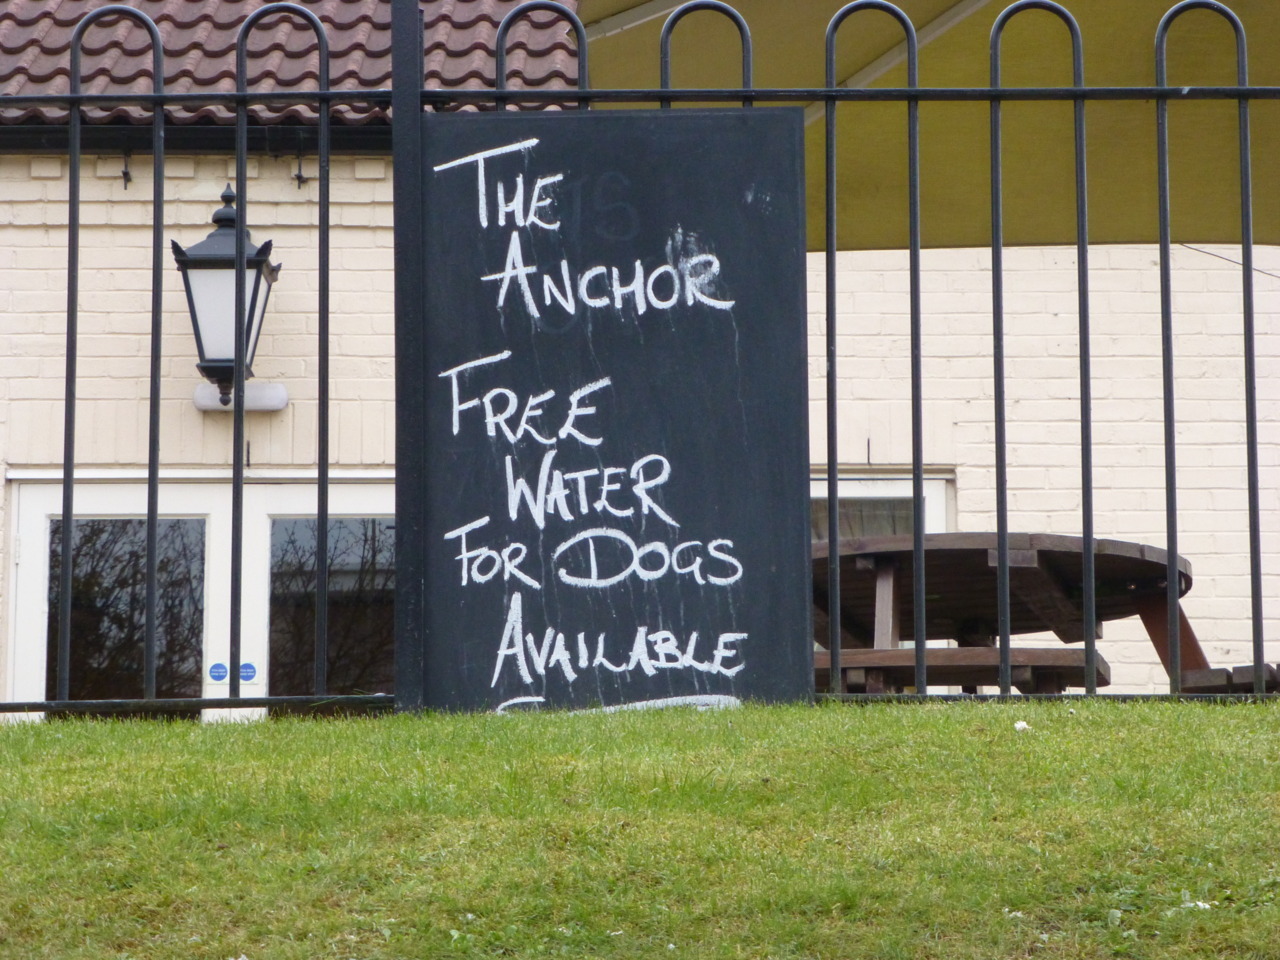 THE
ANCHOR
FREE
WATER
FOR DOGS
AVAILABLE